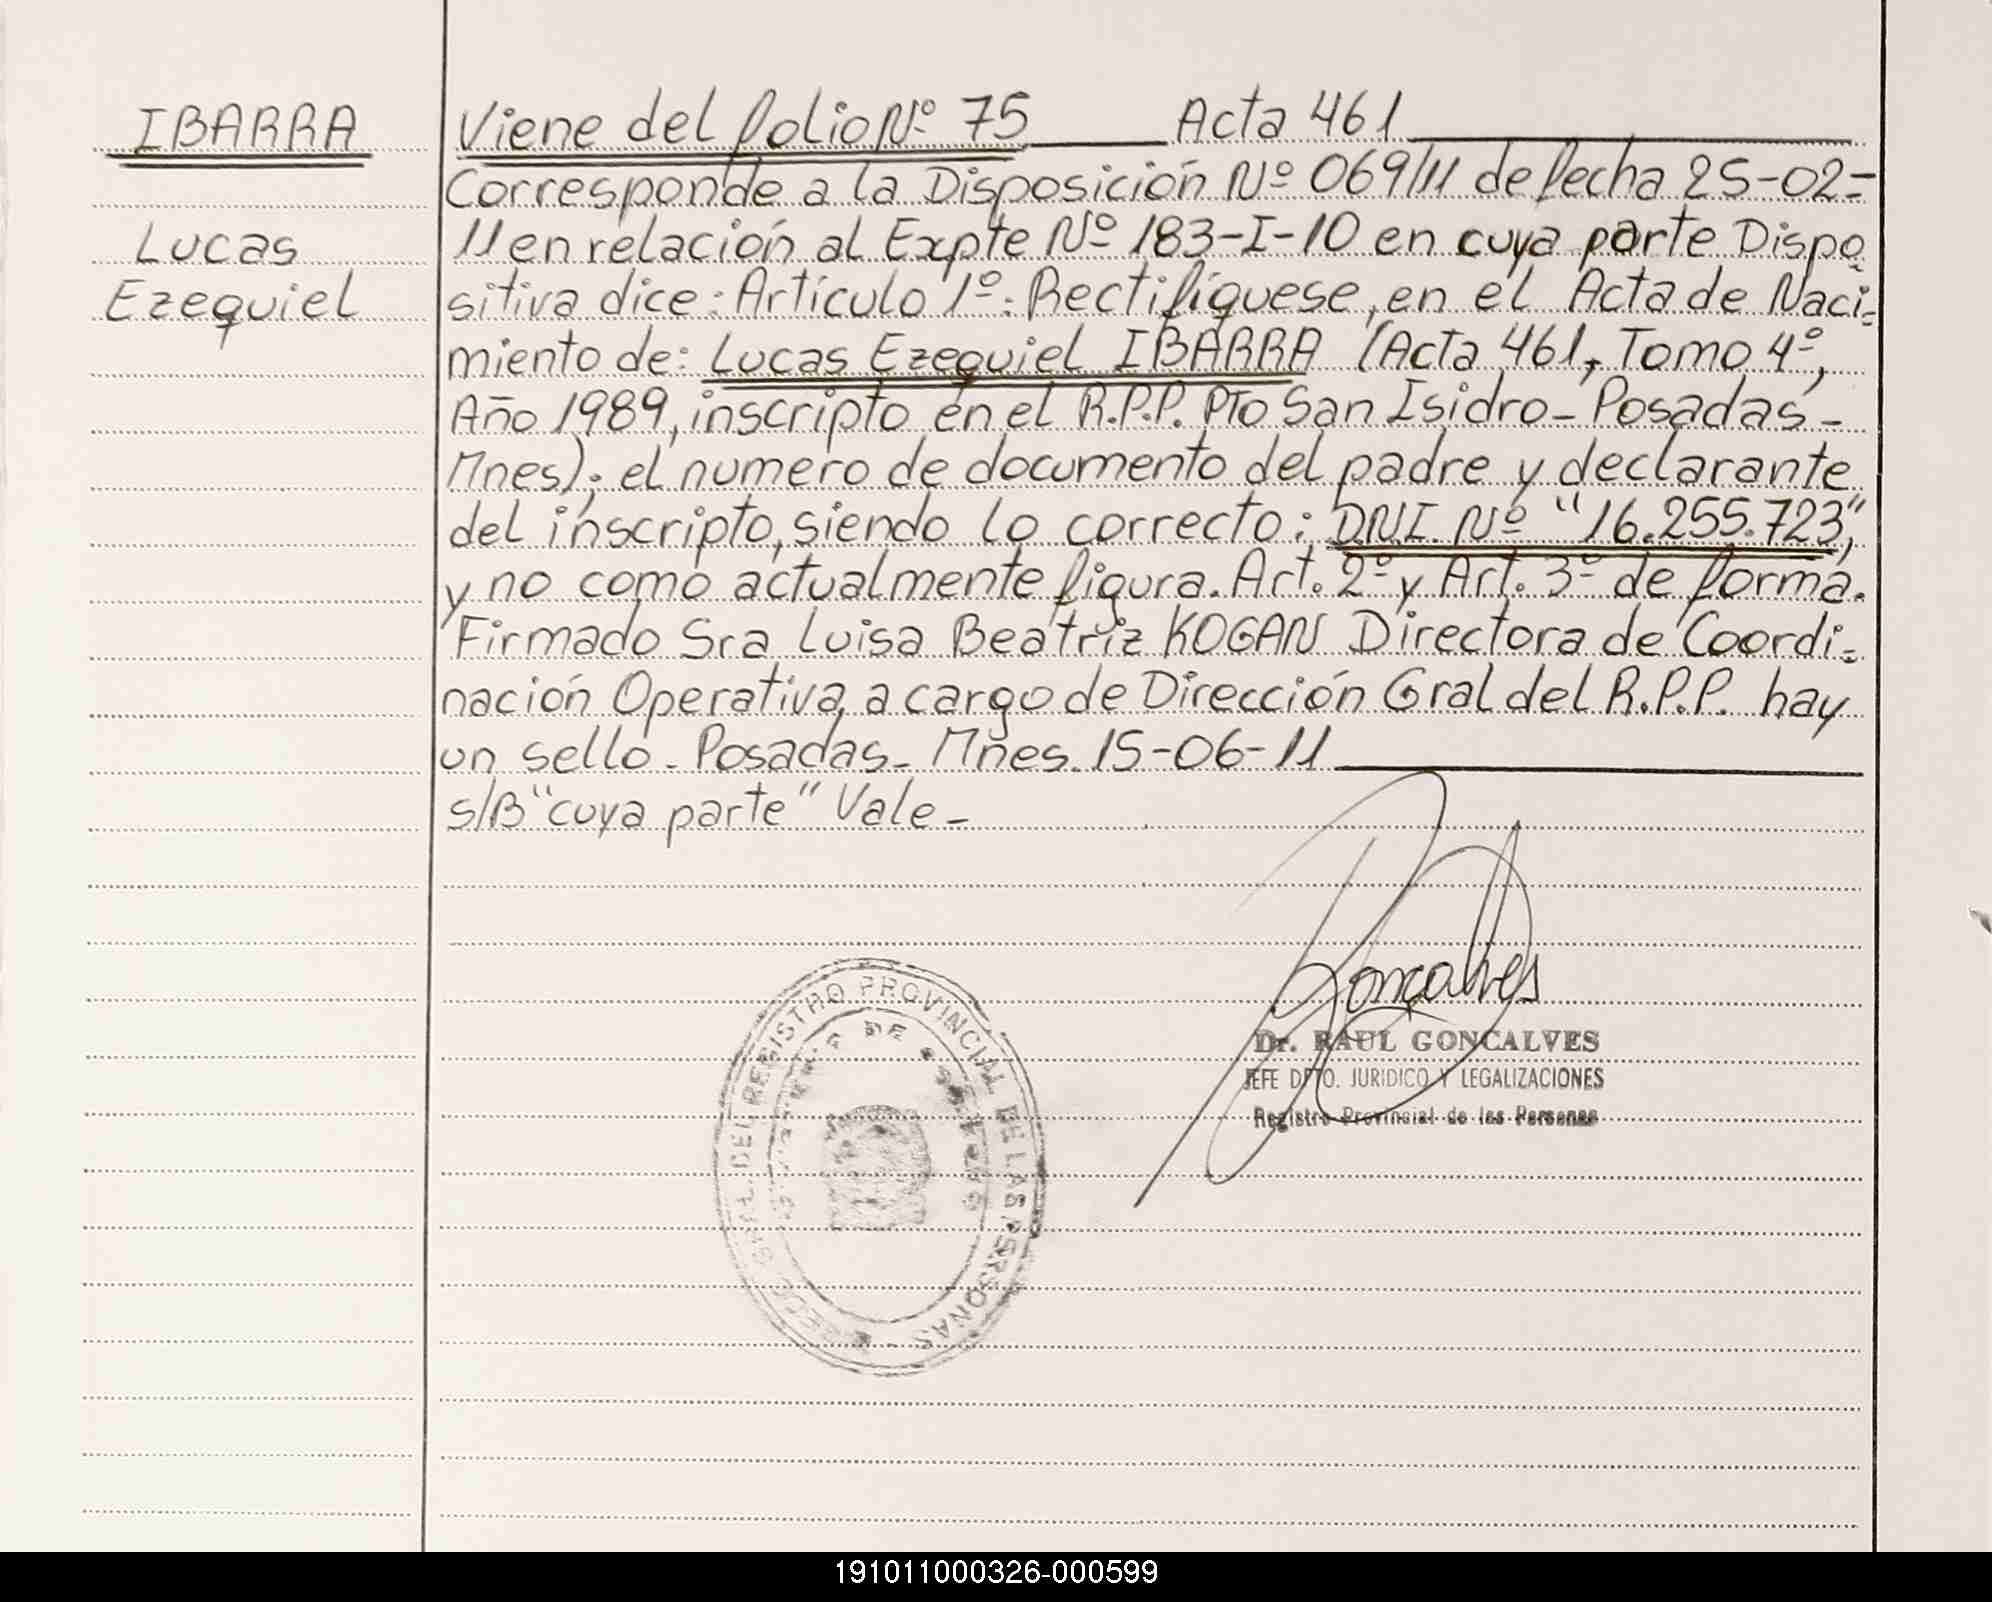 IBARRA
Lucas
Ezequiel
Viene del folio Nº 75 Acta 461
Corresponde a la Disposición Nº 069/11 de fecha 25-02-
11 en relación al Expte Nº 183-I-10 en cuya parte Dispo
sitiva dice: Artículo 1º: Rectifíquese, en el Acta de Naci-
miento de: Lucas Ezequiel IBARRA (Acta 461, Tomo 4º,
Año 1989, inscripto en el R.P.P. Pto San Isidro - Posadas -
Mnes); el numero de documento del padre y declarante
del inscripto, siendo lo correcto: D.N.I. Nº "16.255.723",
y no como actualmente figura. Art. 2º y Art. 3º de forma.
Firmado Sra Luisa Beatriz KOGAN Directora de Coordi-
nación Operativa a cargo de Dirección Gral del R.P.P. hay
un sello - Posadas - Mnes. 15-06-11
S/B "cuya parte" Vale -
Gonçalves
Dr. RAUL GONCALVES
JEFE DPTO. JURIDICO Y LEGALIZACIONES
Registro Provincial de las Personas
GRAL. DEL REGISTRO PROVINCIAL DE LAS PERSONAS
191011000326-000599